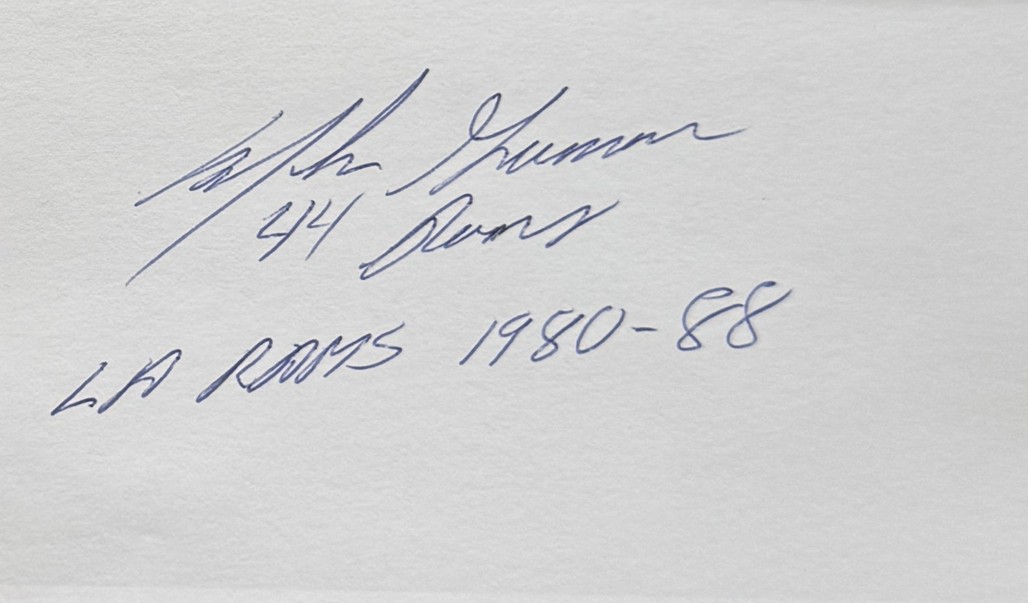 Mike Guman
44 Rams
LA RAMS 1980-88